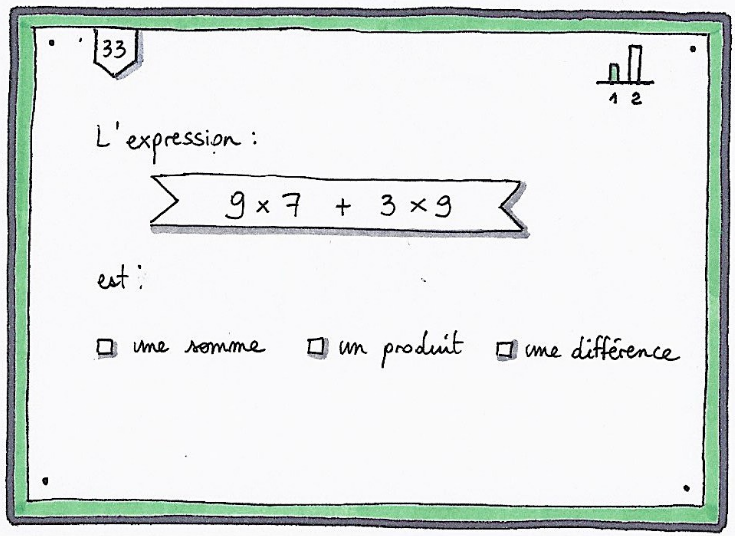 33
1 2
L'expression :
9 × 7 + 3 × 9
est :
□ une somme □ un produit □ une différence